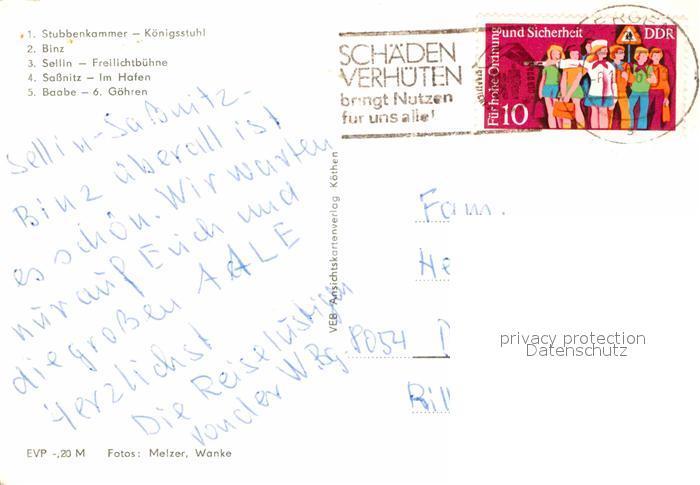 1. Stubbenkammer — Königsstuhl
2. Binz
3. Sellin — Freilichtbühne
4. Saßnitz — Im Hafen
5. Baabe — 6. Göhren
SCHÄDEN
VERHÜTEN
bringt Nutzen
für uns alle!
Für hohe Ordnung
und Sicherheit
DDR
10
BERGEN
Sellin-Saßnitz-
Binz überall ist
es schön. Wir warten
nur auf Euch und
die großen AALE
Herzlichst
Die Reiselustigen
von der W.Bg.
VEB Ansichtskartenverlag Köthen
Fam.
He
8054 D
Bill
privacy protection
Datenschutz
EVP -,20 M Fotos: Melzer, Wanke